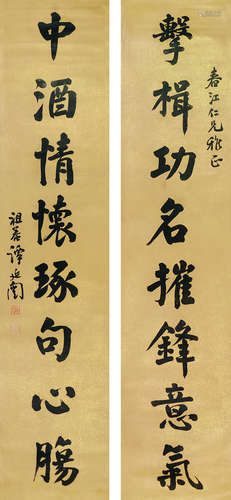 春江仁兄雅正
擊楫功名摧鋒意氣
中酒情懷琢句心腸
祖菴譚延闓